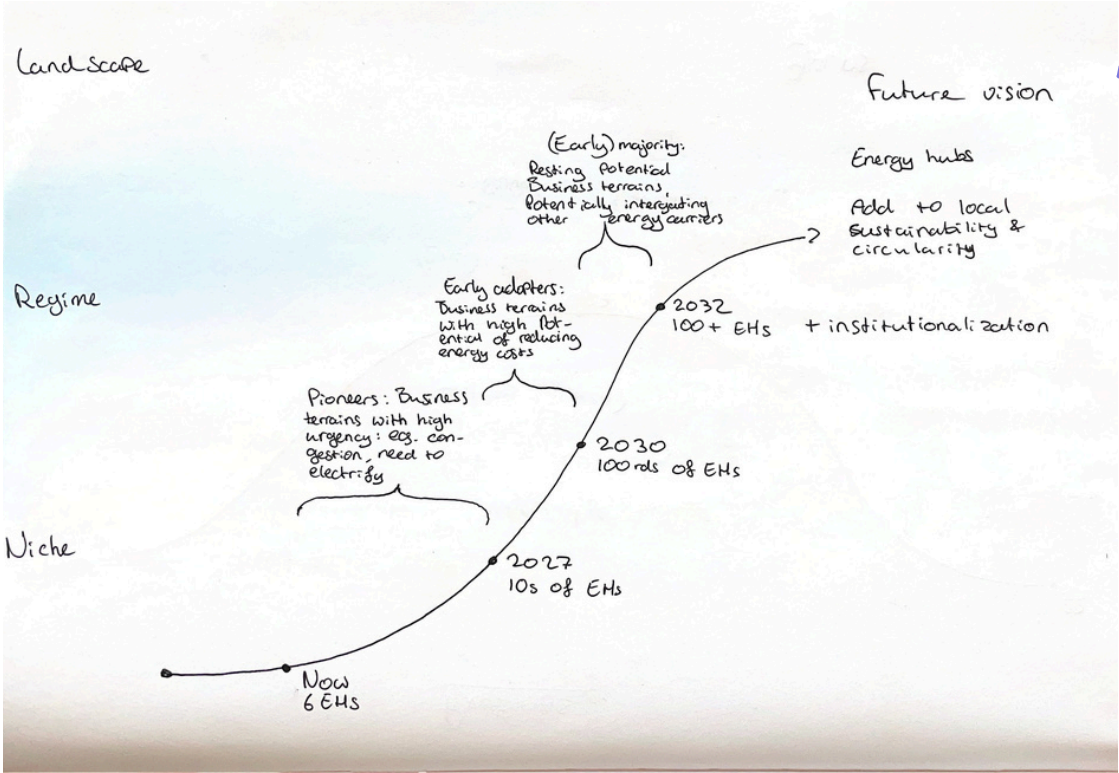 Landscape
Future vision
(Early) majority:
Resting Potential
Business terrains,
Potentially intergating
other energy carriers
Energy hubs
Add to local
sustainability &
circularity
Regime
Early adopters:
Business terrains
with high Pot-
ential of reducing
energy costs
2032
100+ EHs
+ institutionalization
Pioneers: Business
terrains with high
urgency: eg. con-
gestion, need to
electrify
2030
100rds of EHs
Niche
2027
10s of EHs
Now
6 EHs